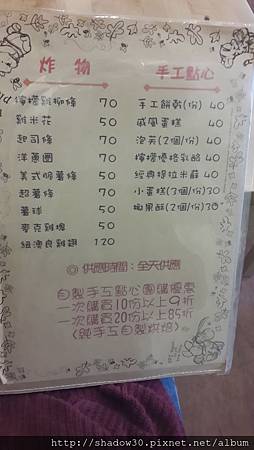 炸 物
檸檬雞柳條 70
雞米花 50
起司條 70
洋蔥圈 70
美式脆薯條 50
超薯條 70
薯球 50
麥克雞塊 50
紐澳良雞翅 120
手工點心
手工餅乾(份) 40
戚風蛋糕 40
泡芙(2個/份) 40
檸檬優格乳酪 40
經典提拉米蘇 40
小蛋糕(3個/份) 30
椰果酥(2個/份) 30
◎ 供應時間：全天供應
自製手工點心團購優惠
一次購買10份以上9折
一次購買20份以上85折
(純手工自製烘焙)
http://shadow30.pixnet.net/album